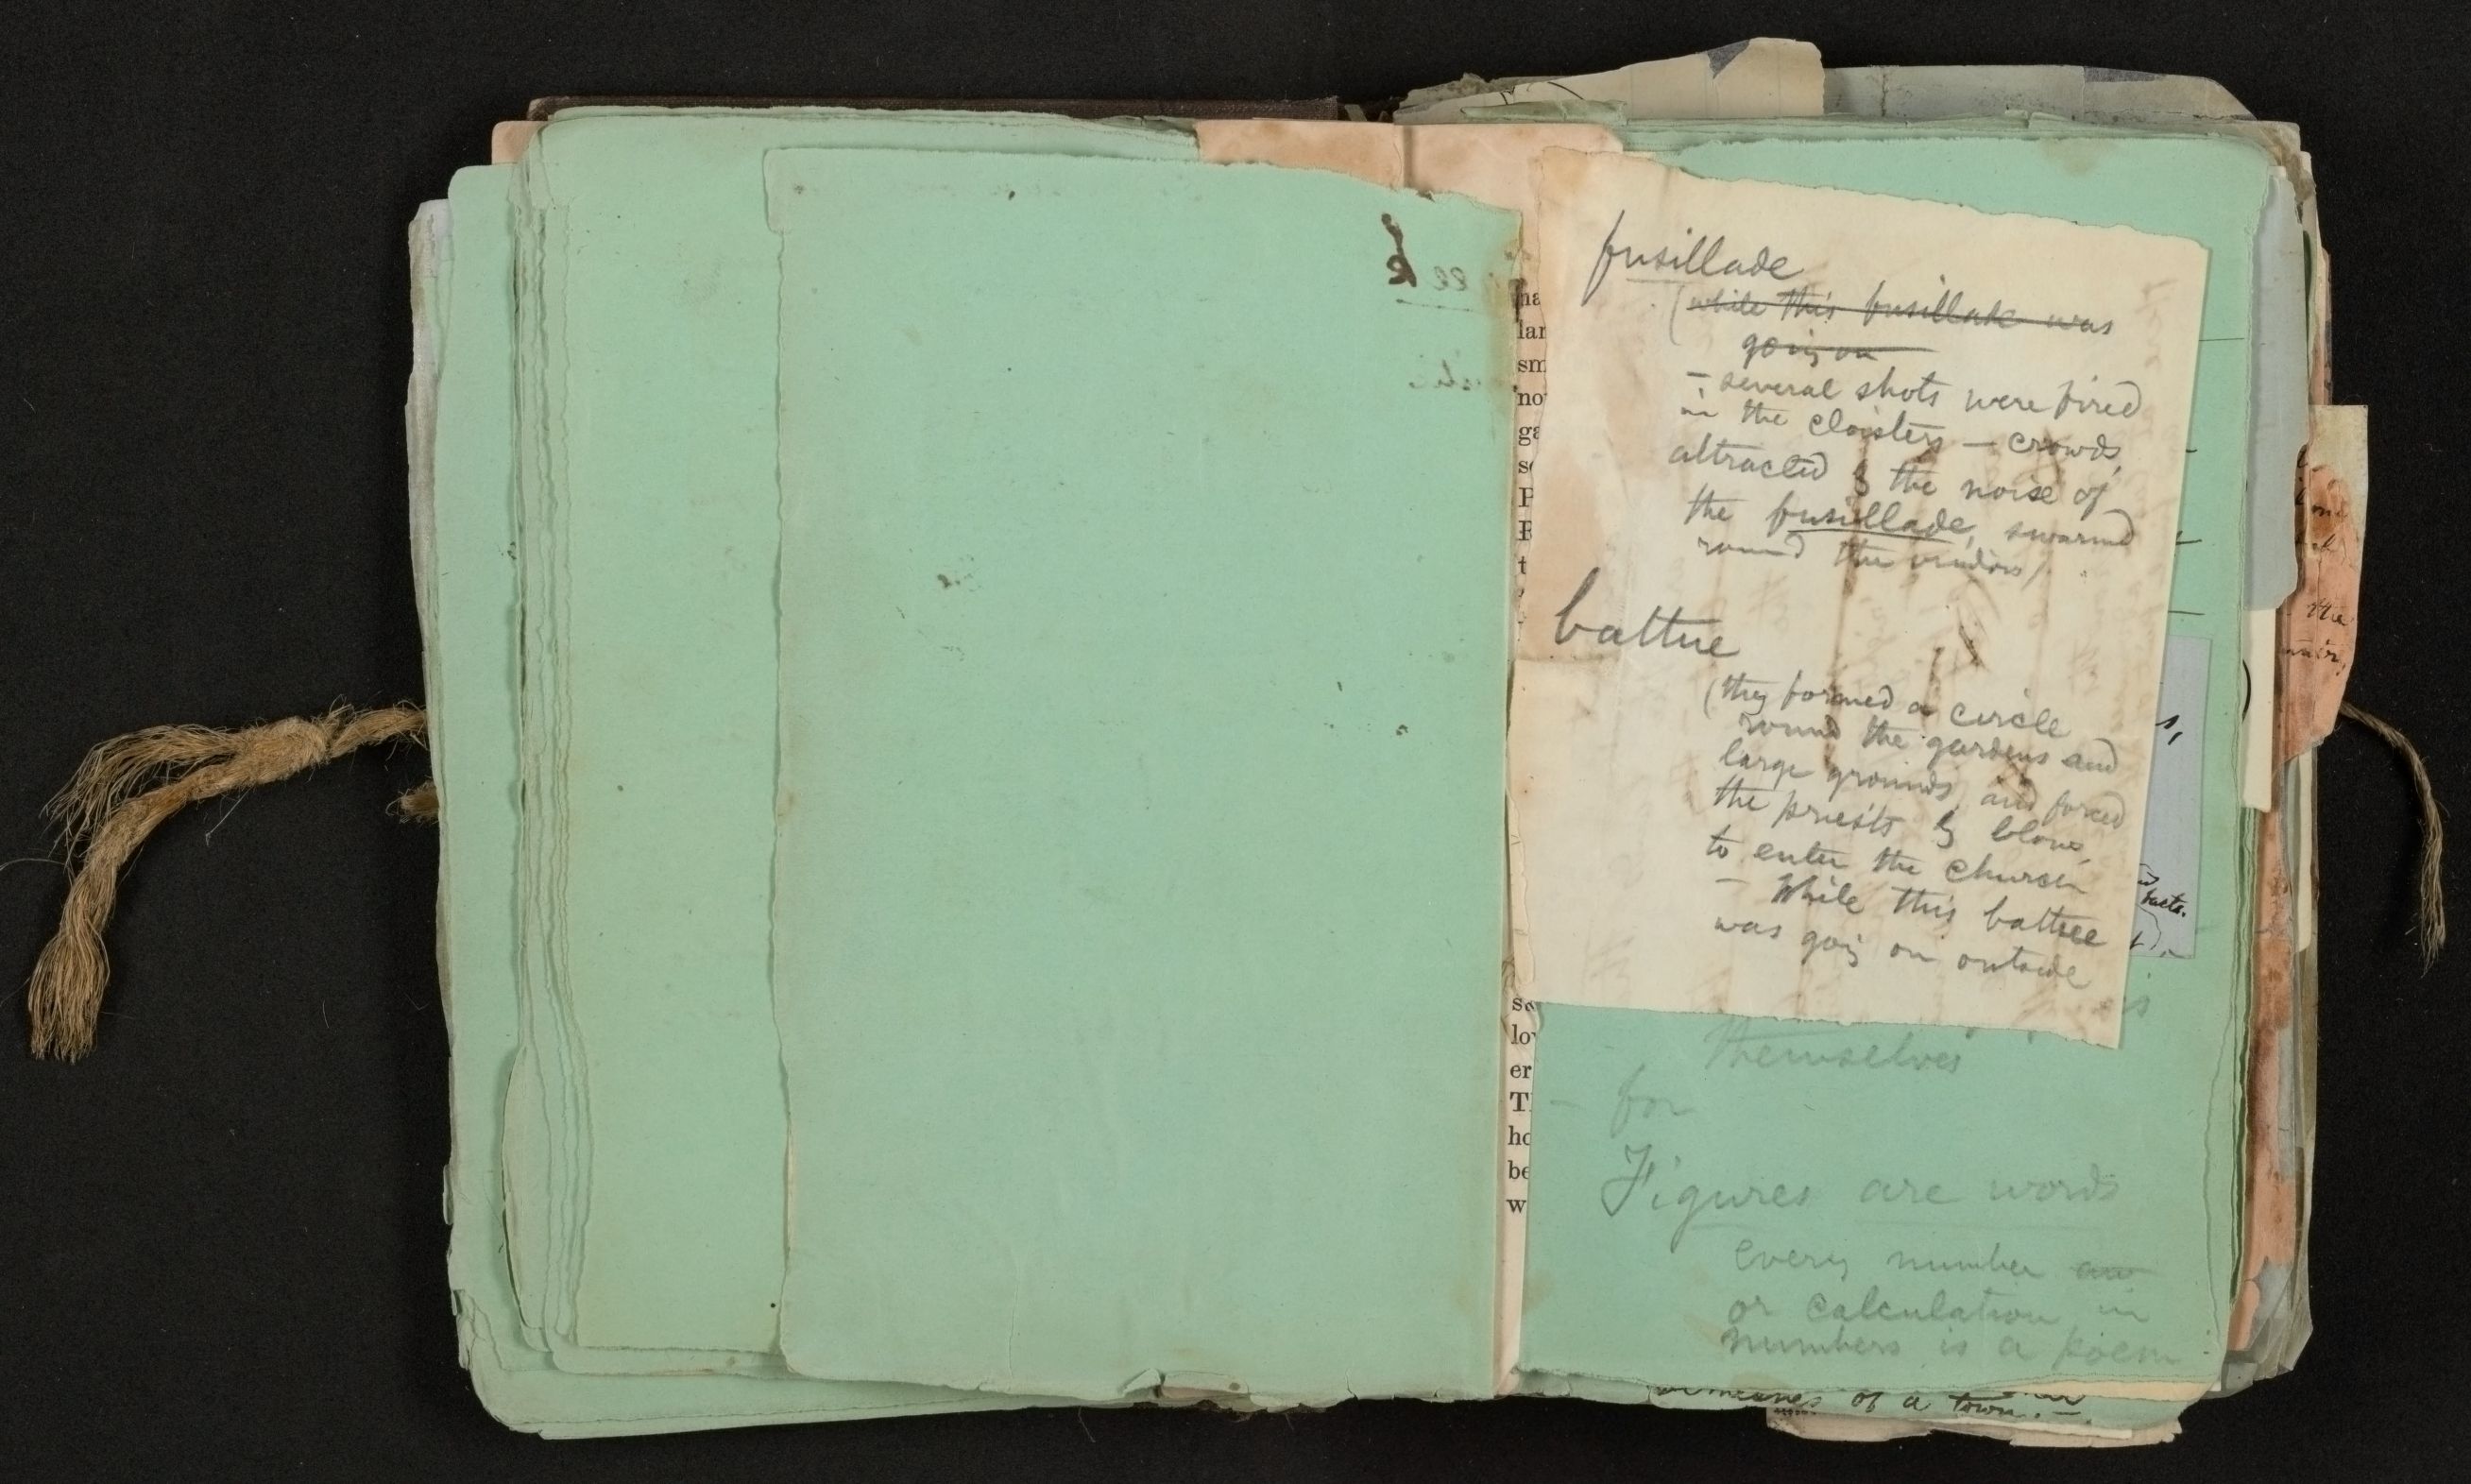 fusillade
(while this fusillade was
going on
– several shots were fired
in the cloisters – crowds,
attracted by the noise of
the fusillade, swarmed
round the windows)
battue
(they formed a circle
round the gardens and
large grounds, and forced
the priests by blows,
to enter the church
– While this battue
was going on outside
themselves
– for
Figures are words
every number
or calculation in
numbers is a poem
of a town. –